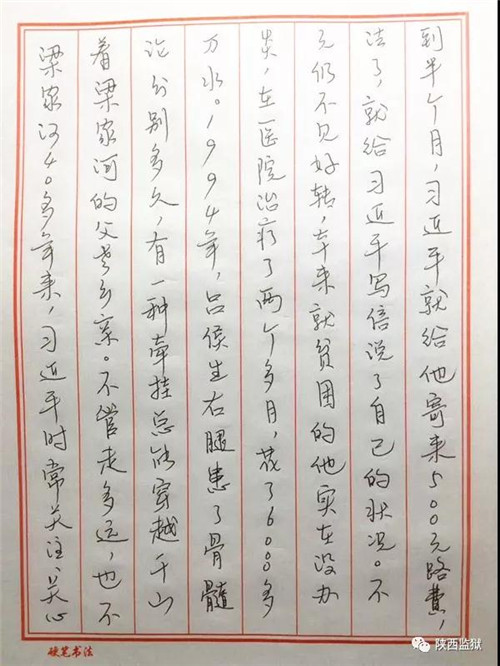 梁家河40多年来，习近平时常关注、关心
着梁家河的父老乡亲。不管走多远，也不
论分别多久，有一种牵挂总能穿越千山
万水。1994年，吕侯生右腿患了骨髓
炎，在医院治疗了两个多月，花了6000多
元仍不见好转，本来就贫困的他实在没办
法了，就给习近平写信说了自己的状况。不
到半个月，习近平就给他寄来500元路费，
硬笔书法
陕西监狱